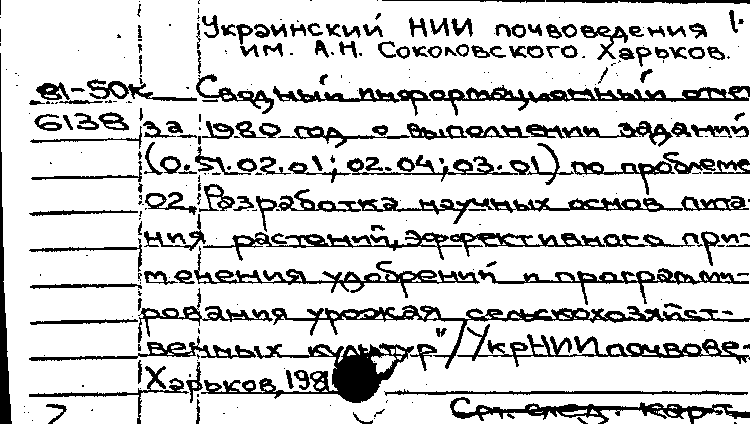 Украинский НИИ почвоведения
им. А.Н. Соколовского. Харьков.
81-50к Сводный информационный отчет
6138 за 1980 год о выполнении заданий
(0.51.02.01; 02.04; 03.01) по проблеме
02. Разработка научных основ пита-
ния растений, эффективного при-
менения удобрений и программи-
рования урожая сельскохозяйст-
венных культур"/УкрНИИпочвове-
Харьков, 198
См. след. карт.